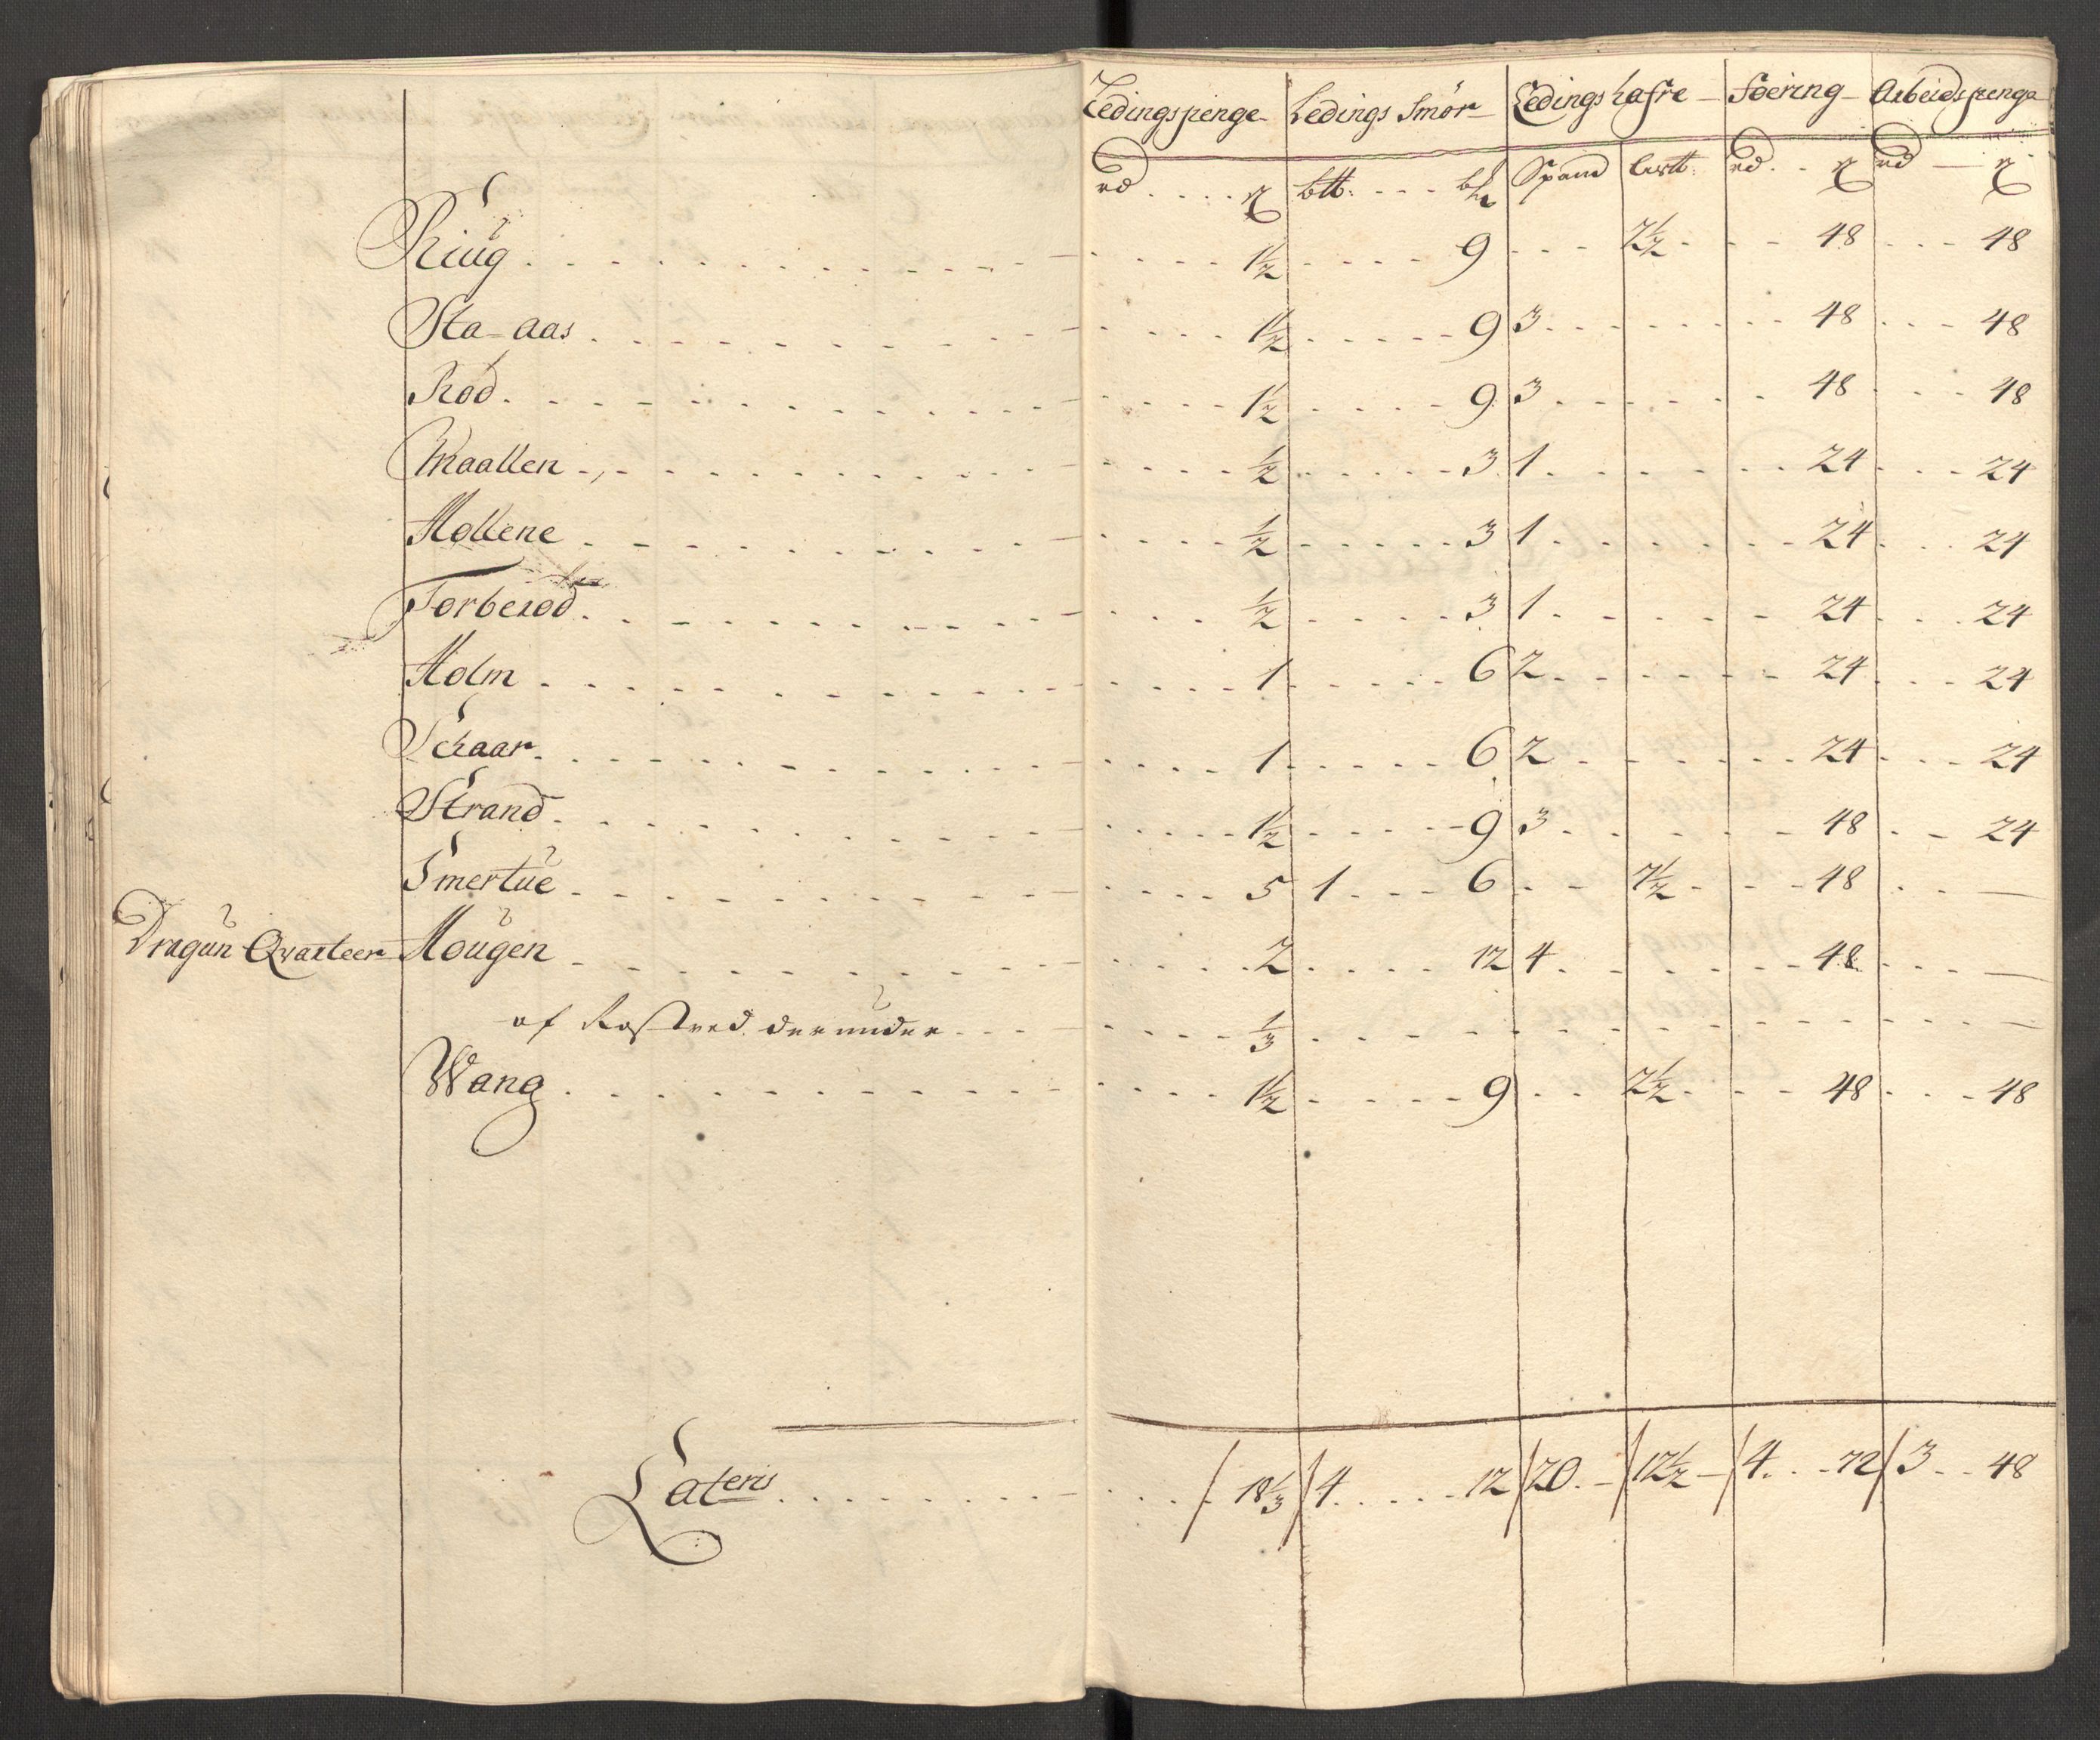 Ledingspenge Ledings Smör Ledings hafre Foering Arbeidspenge
rd ß btt: Spand rd ß rd ß
Riug 1½ 9 7½ 48 48
Sta-aas 1½ 9 3 48 48
Rod 1½ 9 3 48 48
Maallen ½ 3 1 24 24
Mollene ½ 3 1 24 24
Torberod ½ 3 1 24 24
Holm 1 6 2 24 24
Schaar 1 6 2 24 24
Strand 1½ 9 3 48 24
Smertue 5 1 6 7½ 48 —
Dragun Qvarteer Hougen 2 12 4 48 —
af Rostved derunder ⅓ —
Wang 1½ 9 2½ 48 48
Lateris 18⅓ 4 12 20 12½ 4 72 3 48